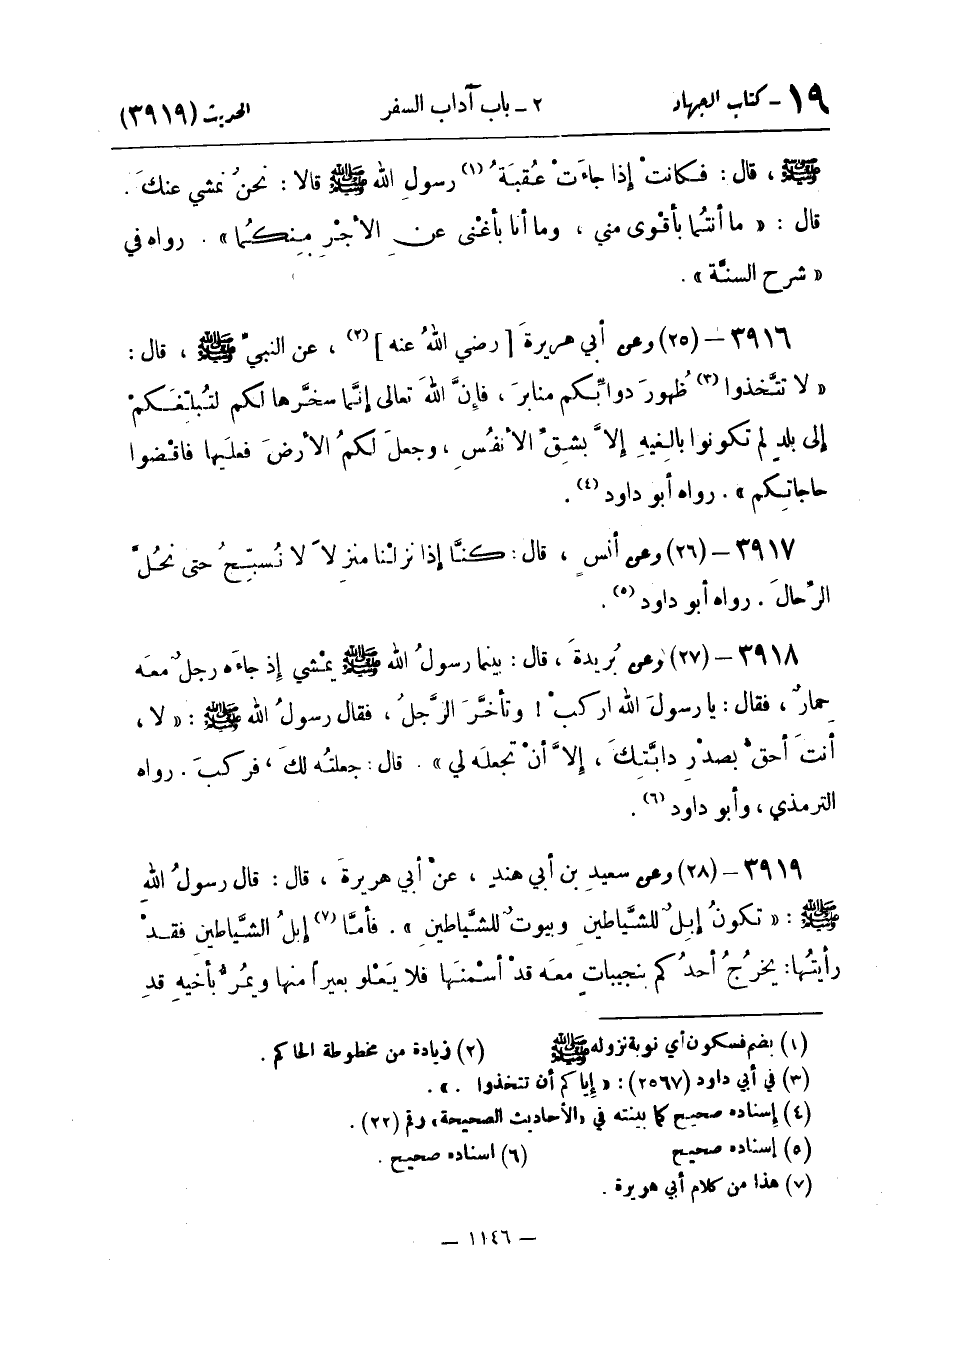 ١٩ - كتاب الجهاد ٢ - باب آداب السفر الحديث (٣٩١٩)
ﷺ ، قال : فكانتْ إذا جاءَتْ عُقبَةُ (١) رسولِ الله ﷺ قالا : نحنُ نمشي عنكَ .
قال : « ما أنتُما بأقوى مني ، وما أنا بأغْنى عنِ الأجْرِ مِنكُما » . رواه في
« شرح السنَّة » .
٣٩١٦ - (٢٥) وعن أبي هريرةَ [ رضي اللهُ عنه ] (٢) ، عن النبيّ ﷺ ، قال :
« لا تتَّخذوا (٣) ظُهورَ دوابِّكم منابرَ ، فإنَّ اللهَ تعالى إنَّما سخَّرها لكم لتُبلِّغَكمْ
إلى بلدٍ لم تكونوا بالِغيهِ إلاَّ بشِقِّ الأنفُسِ ، وجعلَ لكمُ الأرضَ فعلَيها فاقْضوا
حاجاتِكم » . رواه أبو داود (٤) .
٣٩١٧ - (٢٦) وعن أنسٍ ، قال : كنَّا إذا نزلْنا منزِلاً لا نُسبِّحُ حتى نحُلَّ
الرِّحالَ . رواه أبو داود (٥) .
٣٩١٨ - (٢٧) وعن بُريدةَ ، قال : بينما رسولُ الله ﷺ يمْشي إذ جاءَه رجلٌ معَه
حِمارٌ ، فقال : يا رسولَ الله اركبْ ! وتأخَّرَ الرَّجلُ ، فقال رسولُ الله ﷺ : « لا ،
أنتَ أحقُّ بصدْرِ دابَّتِكَ ، إلاَّ أنْ تجعلَه لي » . قال : جعلتُه لكَ ، فركبَ . رواه
الترمذي ، وأبو داود (٦) .
٣٩١٩ - (٢٨) وعن سعيدِ بن أبي هندٍ ، عنْ أبي هريرةَ ، قال : قال رسولُ اللهِ
ﷺ : « تكونُ إبلٌ للشَّياطينِ وبيوتٌ للشَّياطينِ » . فأمَّا (٧) إبلُ الشَّياطينِ فقدْ
رأيتُها : يخرُجُ أحدُكم بنجيباتٍ معَه قدْ أسْمنَها فلا يَعْلو بعيراً منها ويمُرُّ بأخيهِ قدِ
(١) بضم فسكون أي نوبة نزوله ﷺ (٢) زيادة من مخطوطة الحاكم .
(٣) في أبي داود (٢٥٦٧) : « إياكم أن تتخذوا . » .
(٤) إسناده صحيح كما بينته في «الأحاديث الصحيحة» رقم (٢٢) .
(٥) إسناده صحيح (٦) اسناده صحيح .
(٧) هذا من كلام أبي هريرة .
— ١١٤٦ —